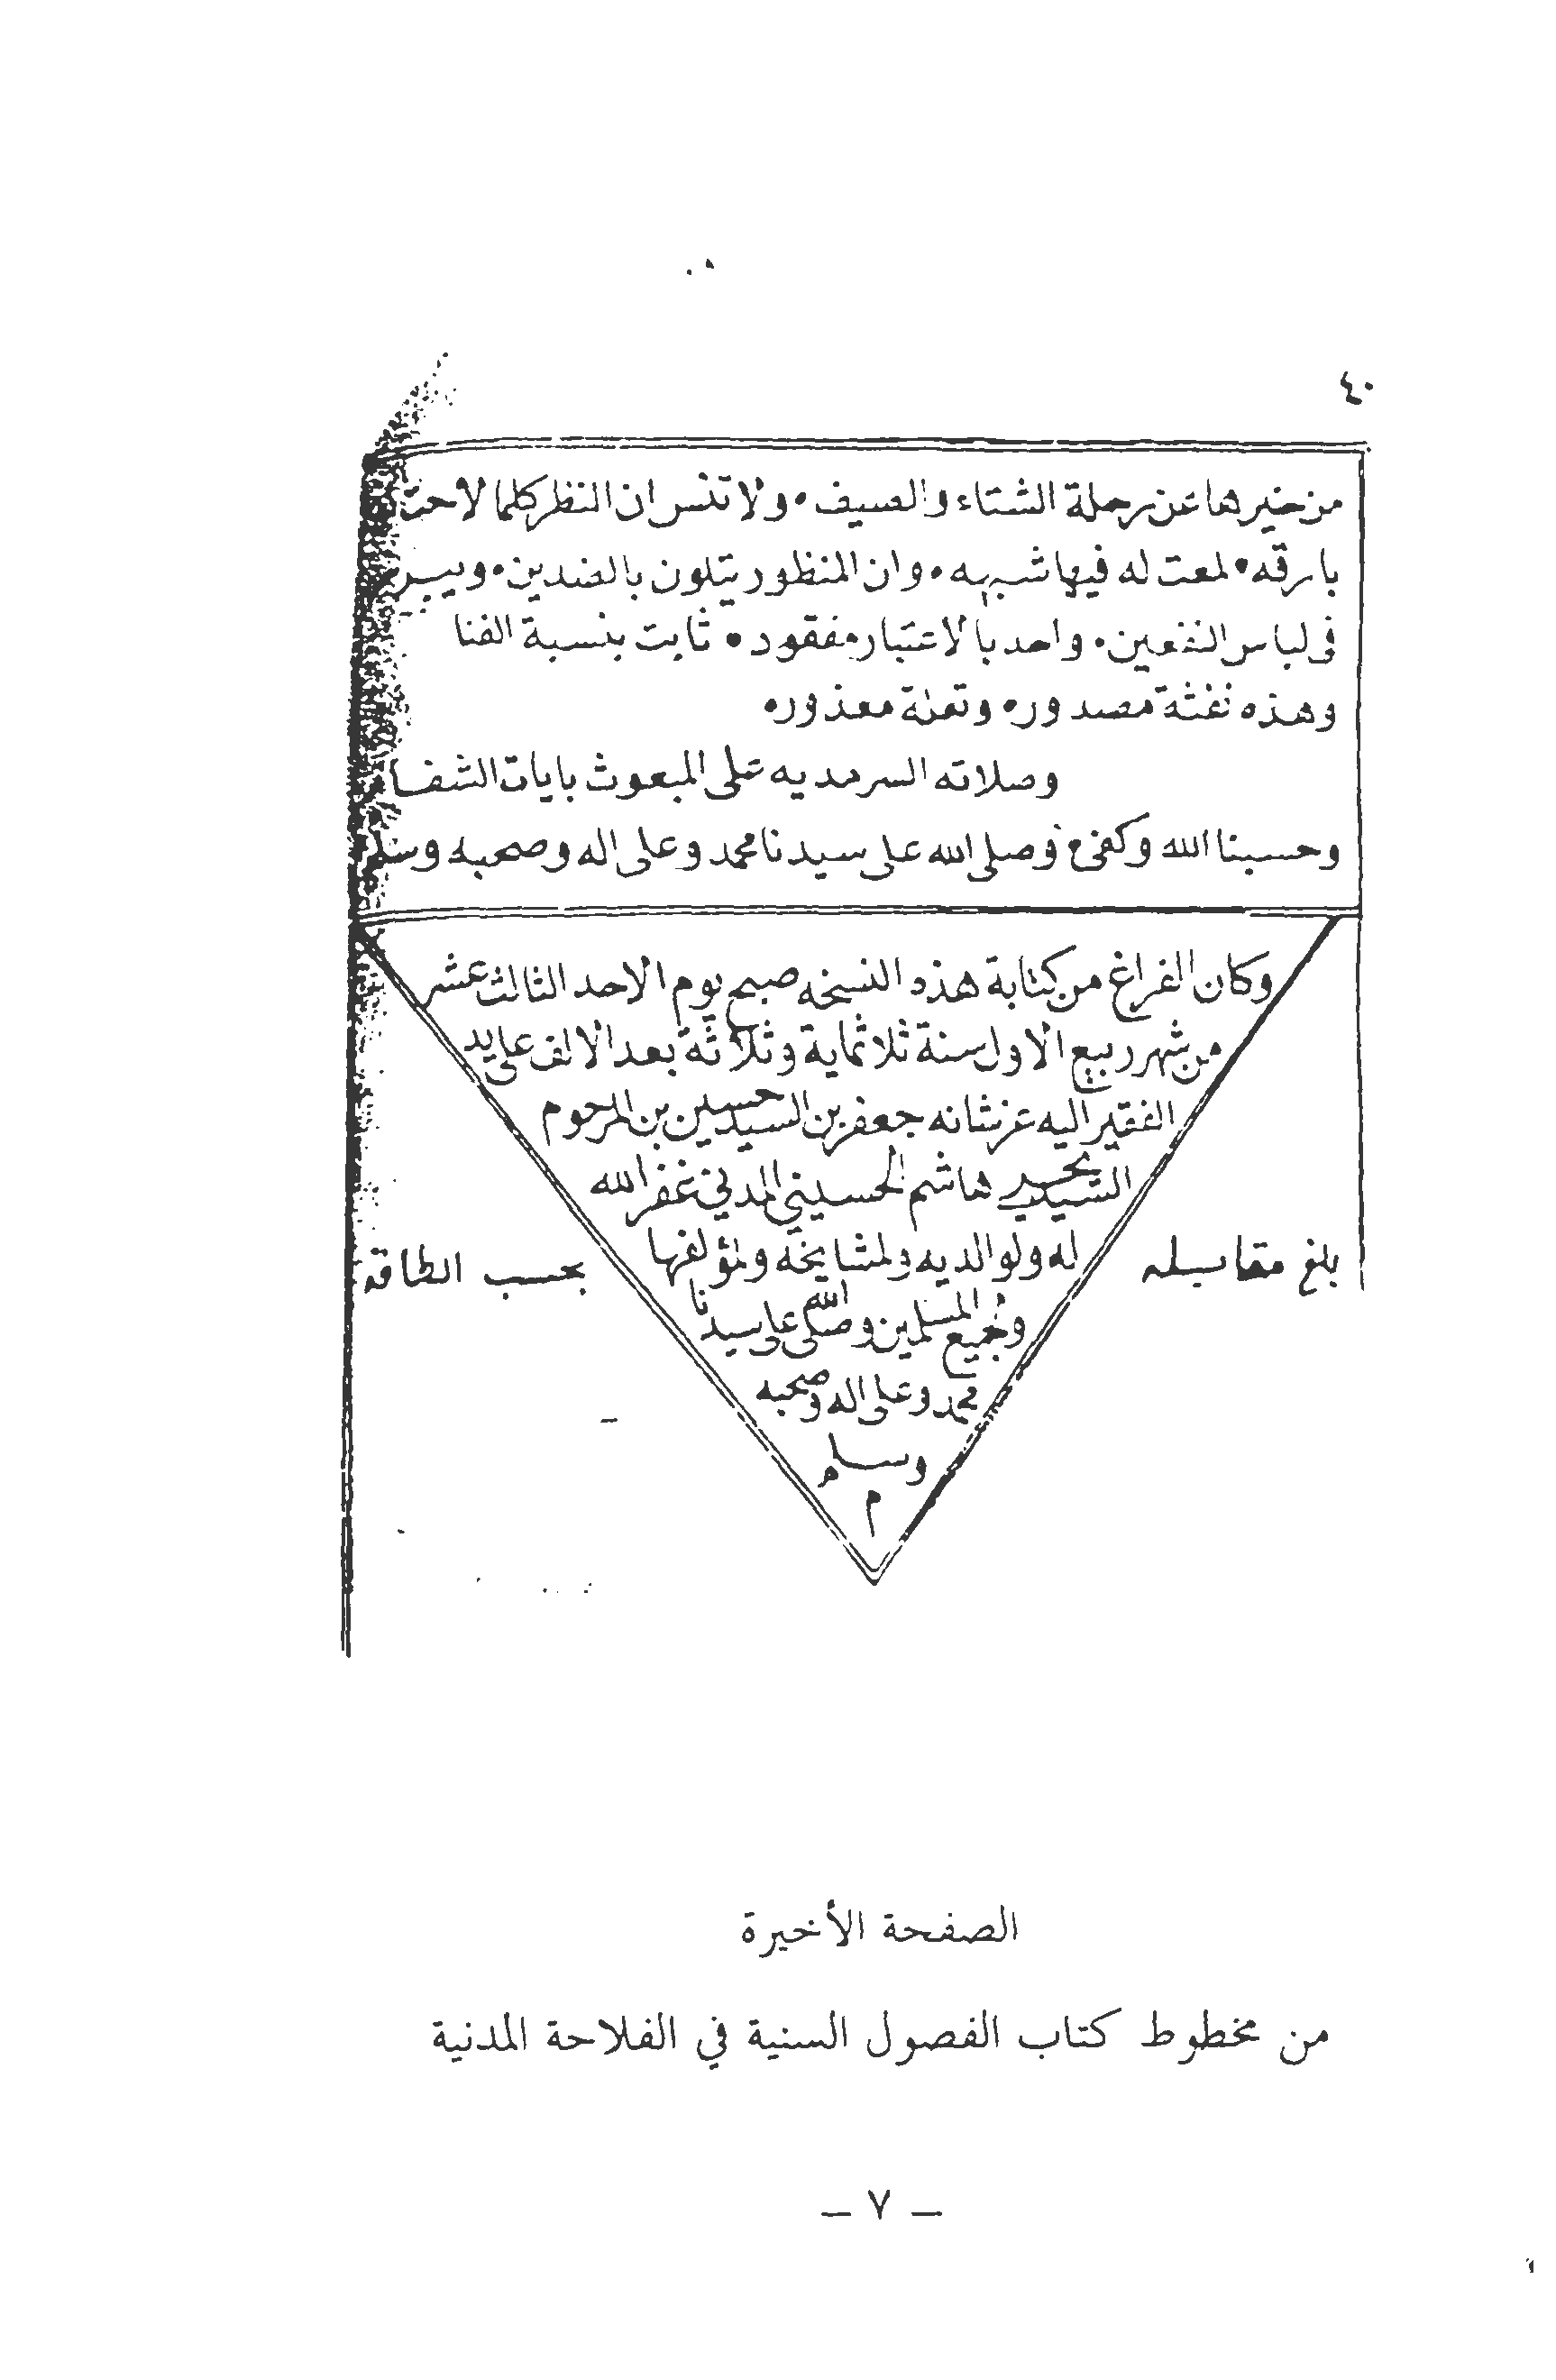 ٤٠
من خيرها عن رحلة الشتاء والصيف • ولا تنس ان النظر كلما لاحت
بارقه • لمعت له فيها شبهه • وان المنظور يتلون بالضدين •
فى لباس النقعين • واحد بالاعتبار مفقود • ثابت بنسبة الفنا
وهذه نفثة مصدوره وتعلة معذوره
وصلاته السرمديه على المبعوث بايات الشفا
وحسبنا الله وكفى وصلى الله على سيدنا محمد وعلى اله وصحبه وسلم
وكان الفراغ من كتابة هذه النسخه صبح يوم الاحد الثالث عشر
من شهر ربيع الاول سنة ثلاثماية وثلاثة بعد الالف على يد
الفقير اليه عز شانه جعفر بن السيد حسين بن المرحوم
السيد يحيى هاشم الحسيني المدني غفر الله
له ولوالديه ولمشايخه ولمؤلفها
بلغ مقابله
بحسب الطاقه
ولجميع المسلمين وصلى الله على سيدنا
محمد وعلى اله وصحبه
وسلم
م
الصفحة الأخيرة
من مخطوط كتاب الفصول السنية في الفلاحة المدنية
— ٧ —